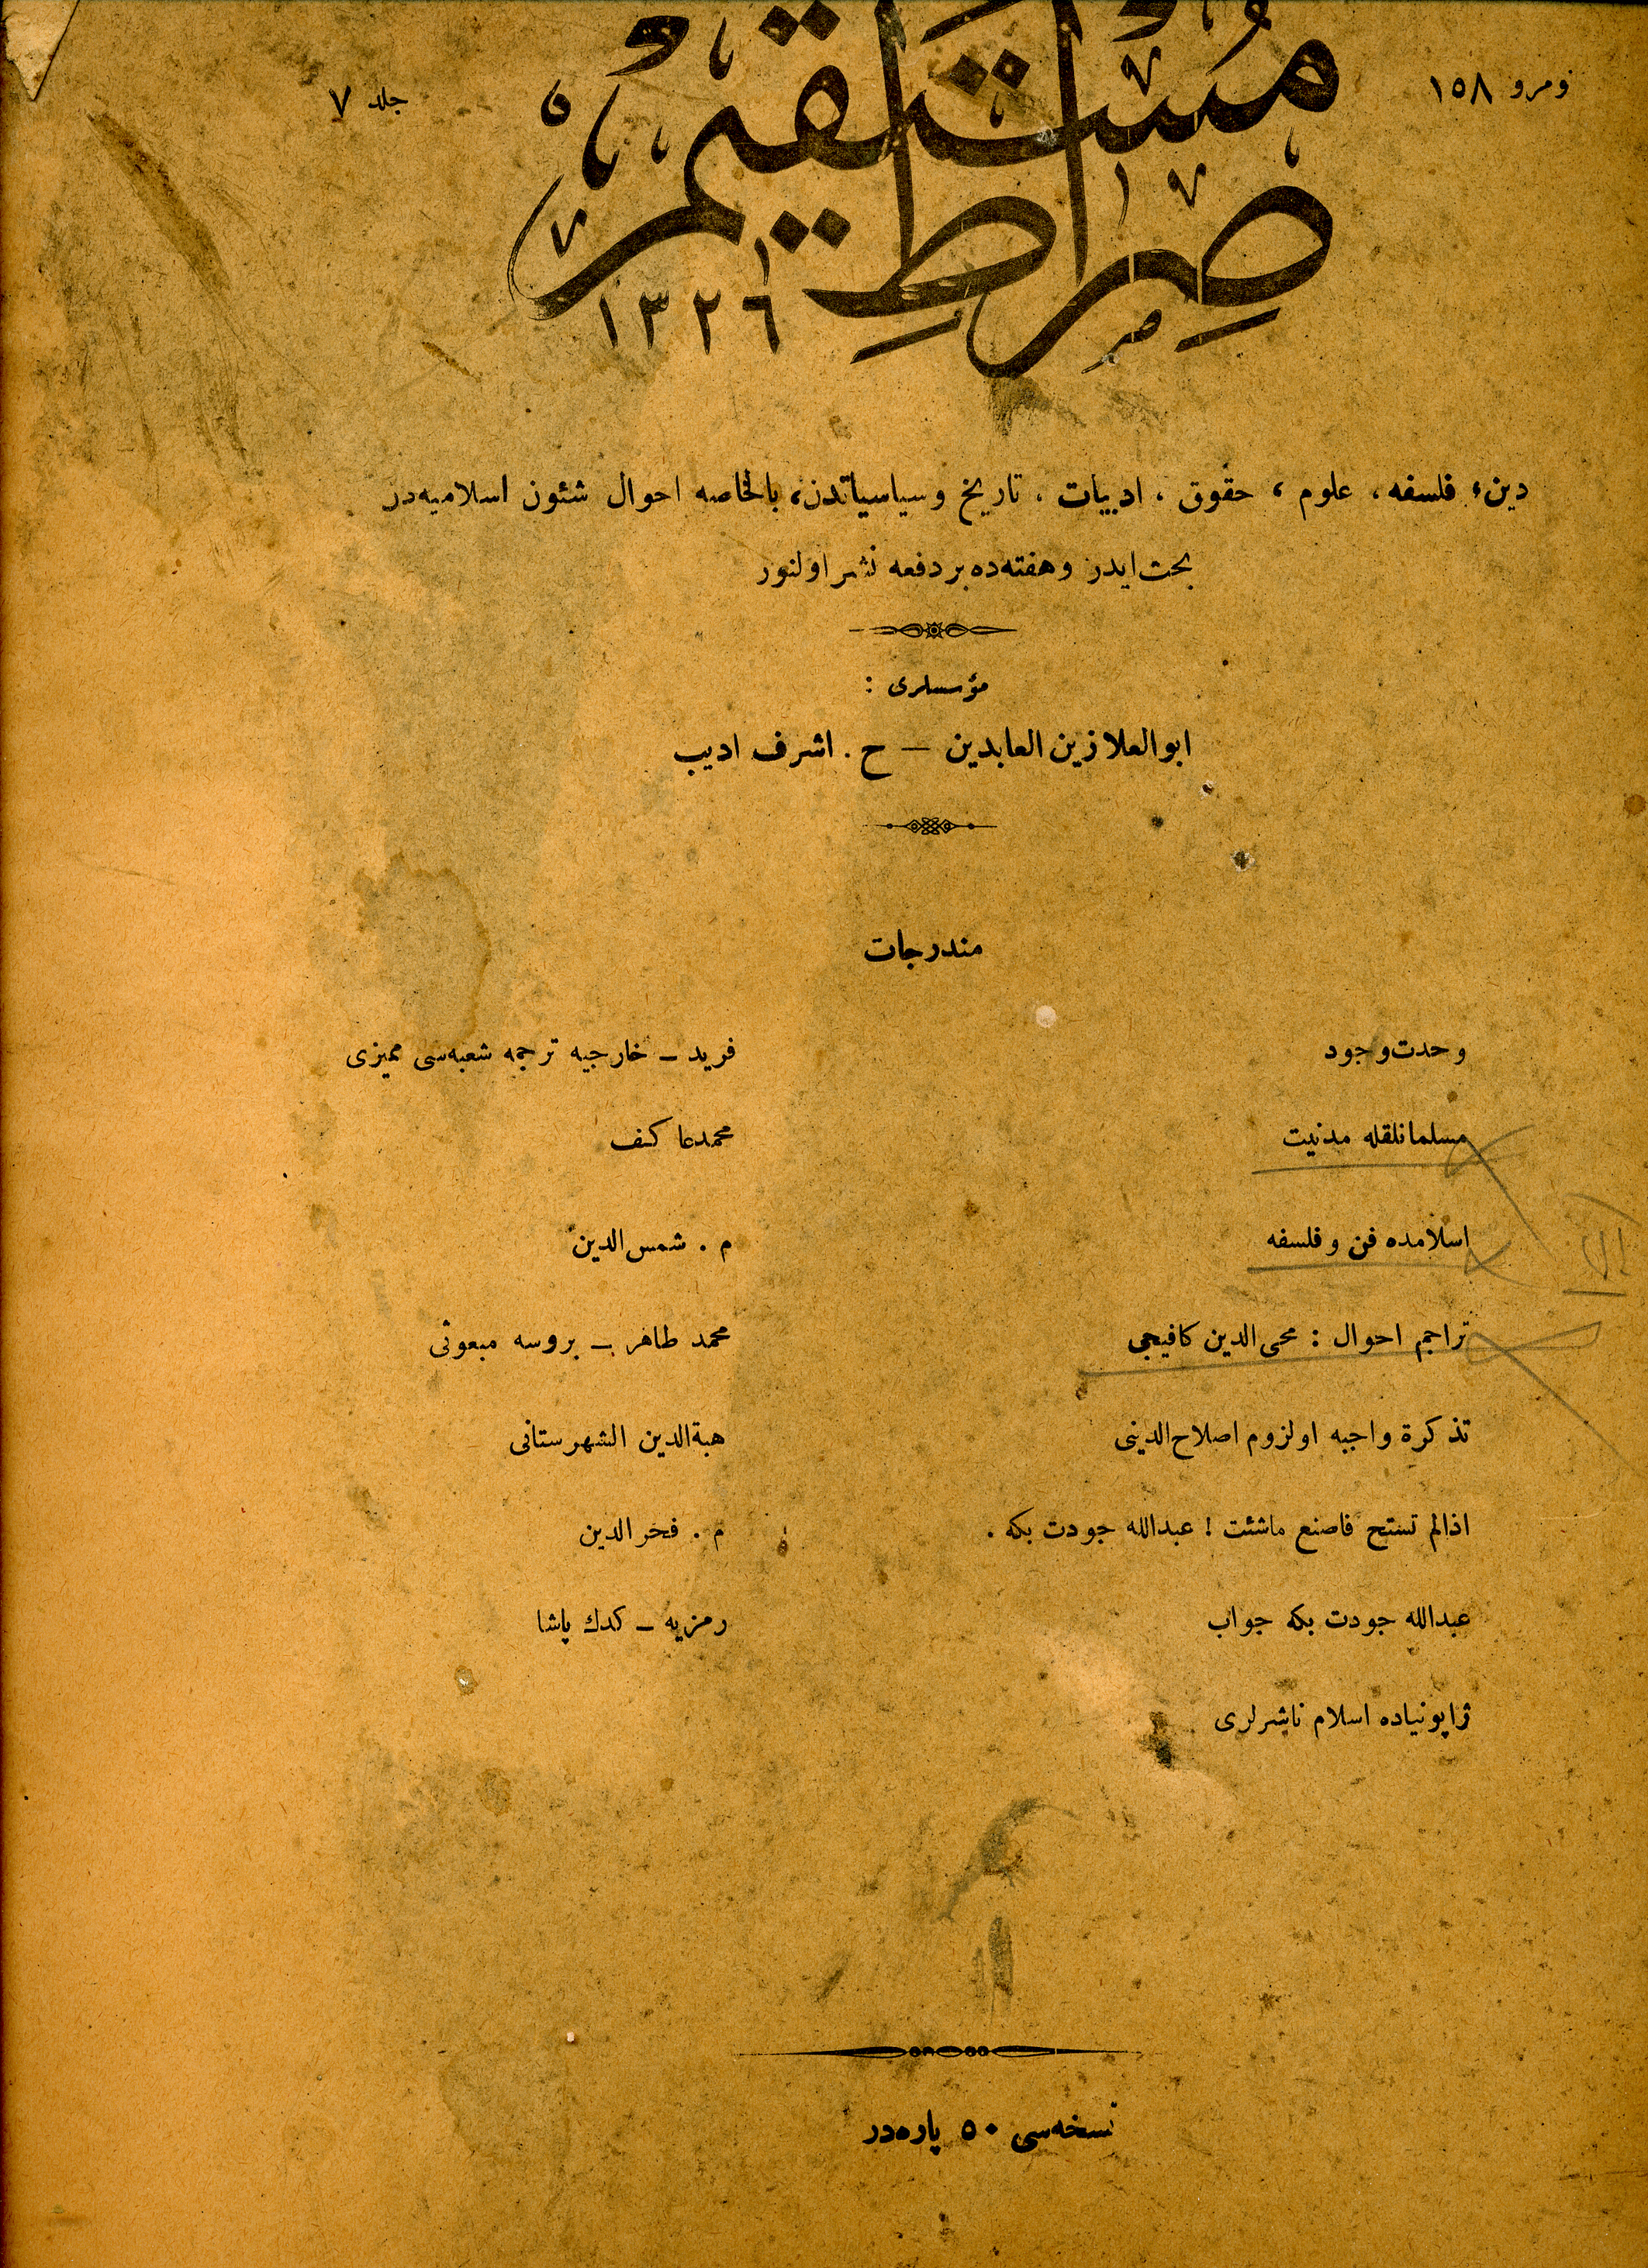 نومرو ١٥٨
جلد ٧
صِرَاطِ مُسْتَقِيم
١٣٢٦
دين، فلسفه، علوم، حقوق، ادبيات، تاريخ وسياسياتدن، بالخاصه احوال شئون اسلاميه‌در
بحث ايدر وهفته‌ده بر دفعه نشر اولنور
مؤسسلرى :
ابوالعلا زين العابدين — ح. اشرف اديب
مندرجات
وحدت‌وجود فريد — خارجيه ترجمه شعبه‌سى مميزى
مسلمانلقله مدنيت محمدعاكف
اسلامده فن وفلسفه م. شمس‌الدين
تراجم احوال : محى‌الدين كافيجى محمد طاهر — بروسه مبعوثى
تذكرة واجبه اولزوم اصلاح‌الدينى هبةالدين الشهرستانى
اذالم تستح فاصنع ماشئت ! عبدالله جودت بكه. م. فخرالدين
عبدالله جودت بكه جواب رمزيه — كدك پاشا
ژاپونياده اسلام ناشرلرى
نسخه‌سى ٥٠ پاره‌در